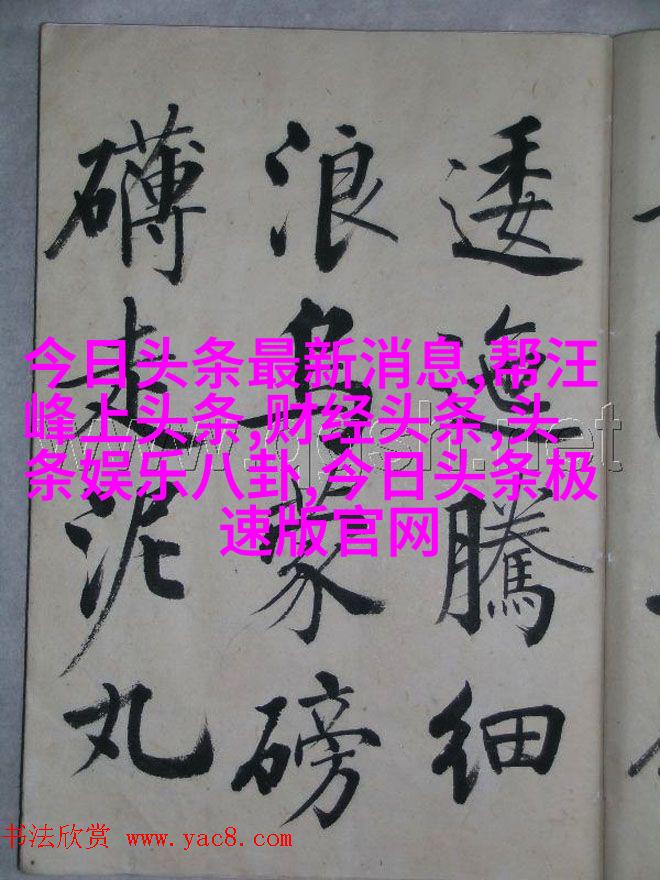 逶迤騰细
浪乌蒙磅
礴走泥丸
今日头条最新消息,帮汪
峰上头条,财经头条,头
条娱乐八卦,今日头条极
速版官网
书法欣赏 www.yac8.com